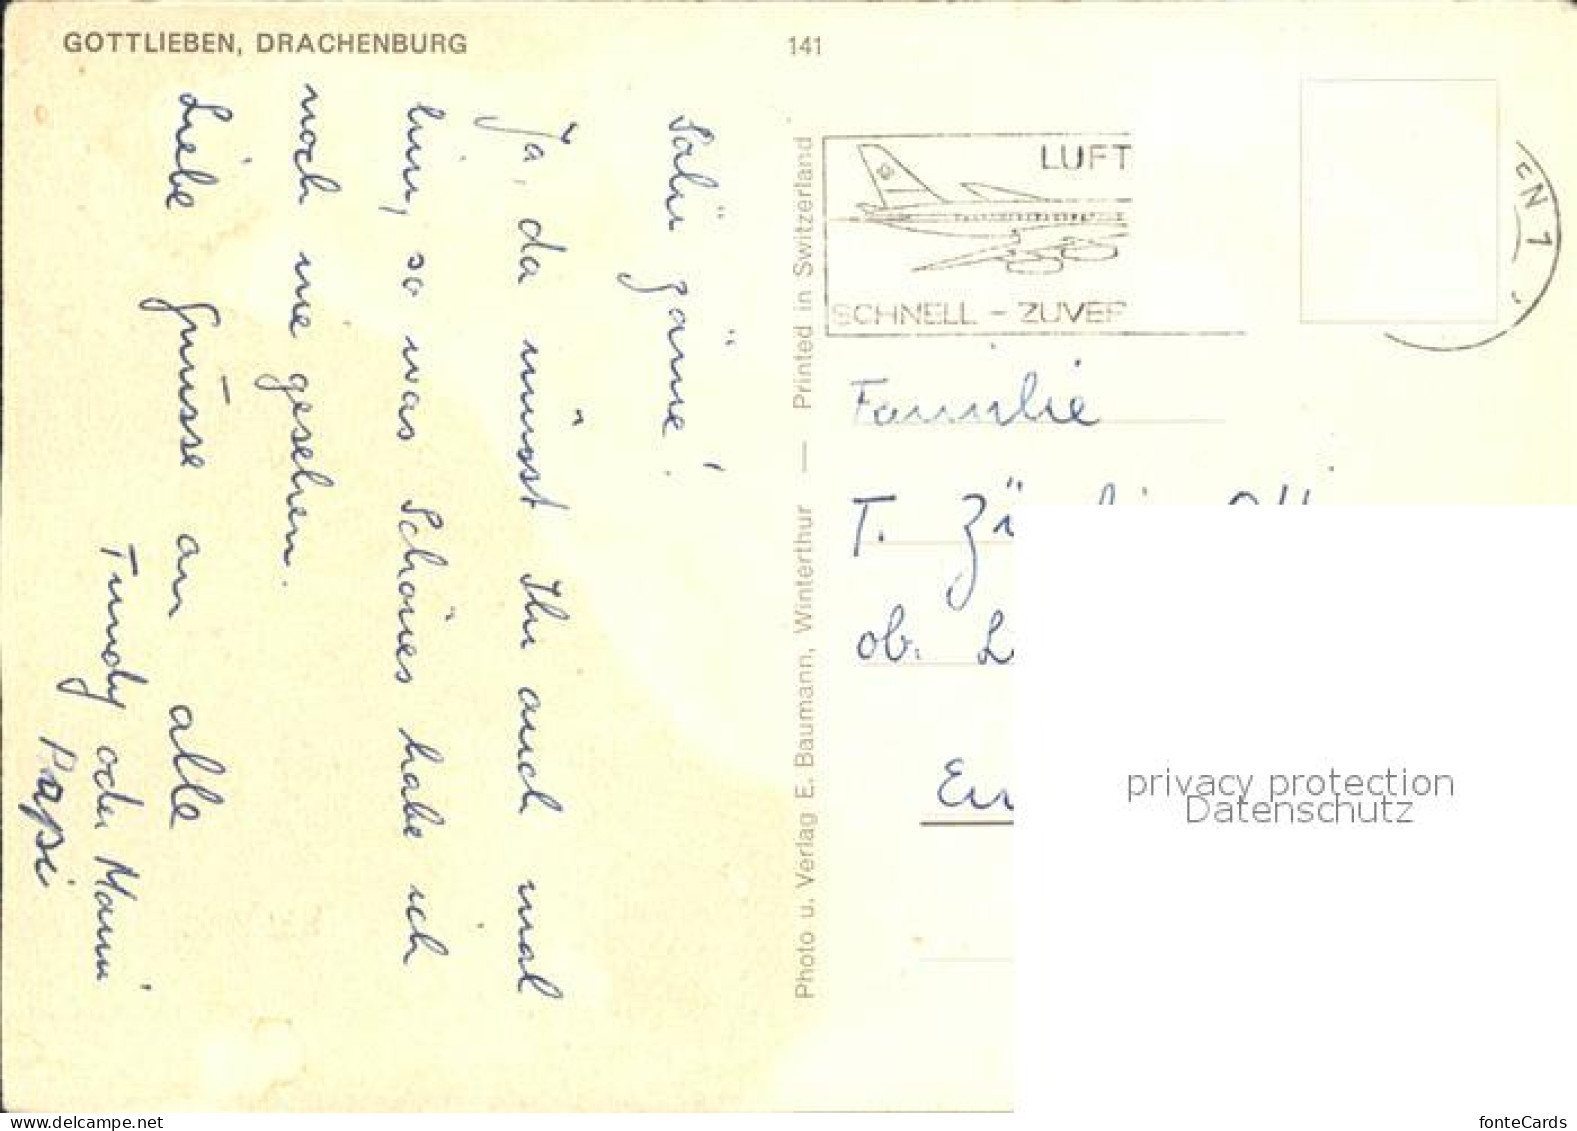 GOTTLIEBEN, DRACHENBURG
141
Salü gäme!
Ja, da müsst Ihr auch mal
hin, so was Schönes habe ich
noch nie gesehen.
Liebe Grüsse an alle
Trudy oder Mami
Papi
Photo u. Verlag E. Baumann, Winterthur — Printed in Switzerland
LUFT
SCHNELL - ZUVER
EN 1
Familie
T.
ob.
privacy protection
Datenschutz
www.delcampe.net
fonteCards